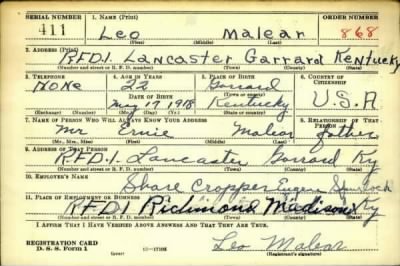 SERIAL NUMBER 1. NAME (Print) ORDER NUMBER
411 Leo Malear 868
(First) (Middle) (Last)
2. ADDRESS (Print)
R.F.D.1. Lancaster Garrard Kentucky
(Number and street or R. F. D. number) (Town) (County) (State)
3. TELEPHONE 4. AGE IN YEARS 5. PLACE OF BIRTH 6. COUNTRY OF CITIZENSHIP
None 22 Garrard
DATE OF BIRTH (Town or county) U.S.A
May 17 1918 Kentucky
(Exchange) (Number) (Mo.) (Day) (Yr.) (State or country)
7. NAME OF PERSON WHO WILL ALWAYS KNOW YOUR ADDRESS 8. RELATIONSHIP OF THAT PERSON
Mr Ernie Malear father
(Mr., Mrs., Miss) (First) (Middle) (Last)
9. ADDRESS OF THAT PERSON
R.F.D.1. Lancaster Garrard Ky
(Number and street or R. F. D. number) (Town) (County) (State)
10. EMPLOYER'S NAME
Share Cropper Eugene
11. PLACE OF EMPLOYMENT OR BUSINESS
R.F.D1 Richmond Madison Ky
(Number and street or R. F. D. number) (Town) (County) (State)
I AFFIRM THAT I HAVE VERIFIED ABOVE ANSWERS AND THAT THEY ARE TRUE.
REGISTRATION CARD
D. S. S. Form 1 Leo Malear
(Registrant's signature)